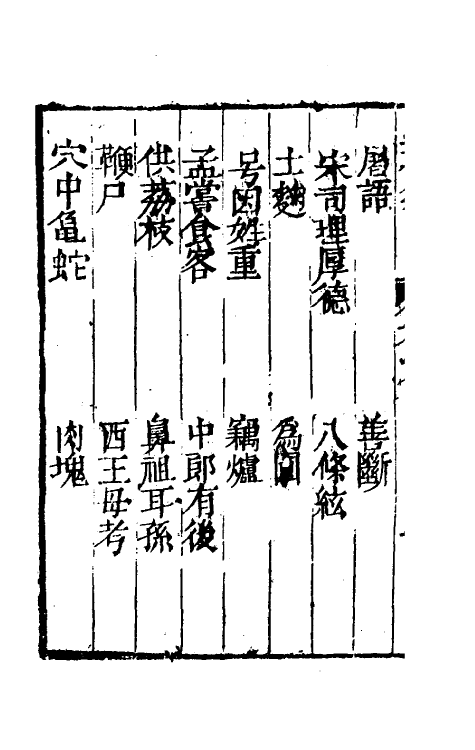 語　善斷
宋司理厚德　八條絃
土　為
号因姓重　竊爐
孟嘗食客　中郎有後
供荔枝　鼻祖耳孫
鞭尸　西王母考
穴中亀蛇　肉塊